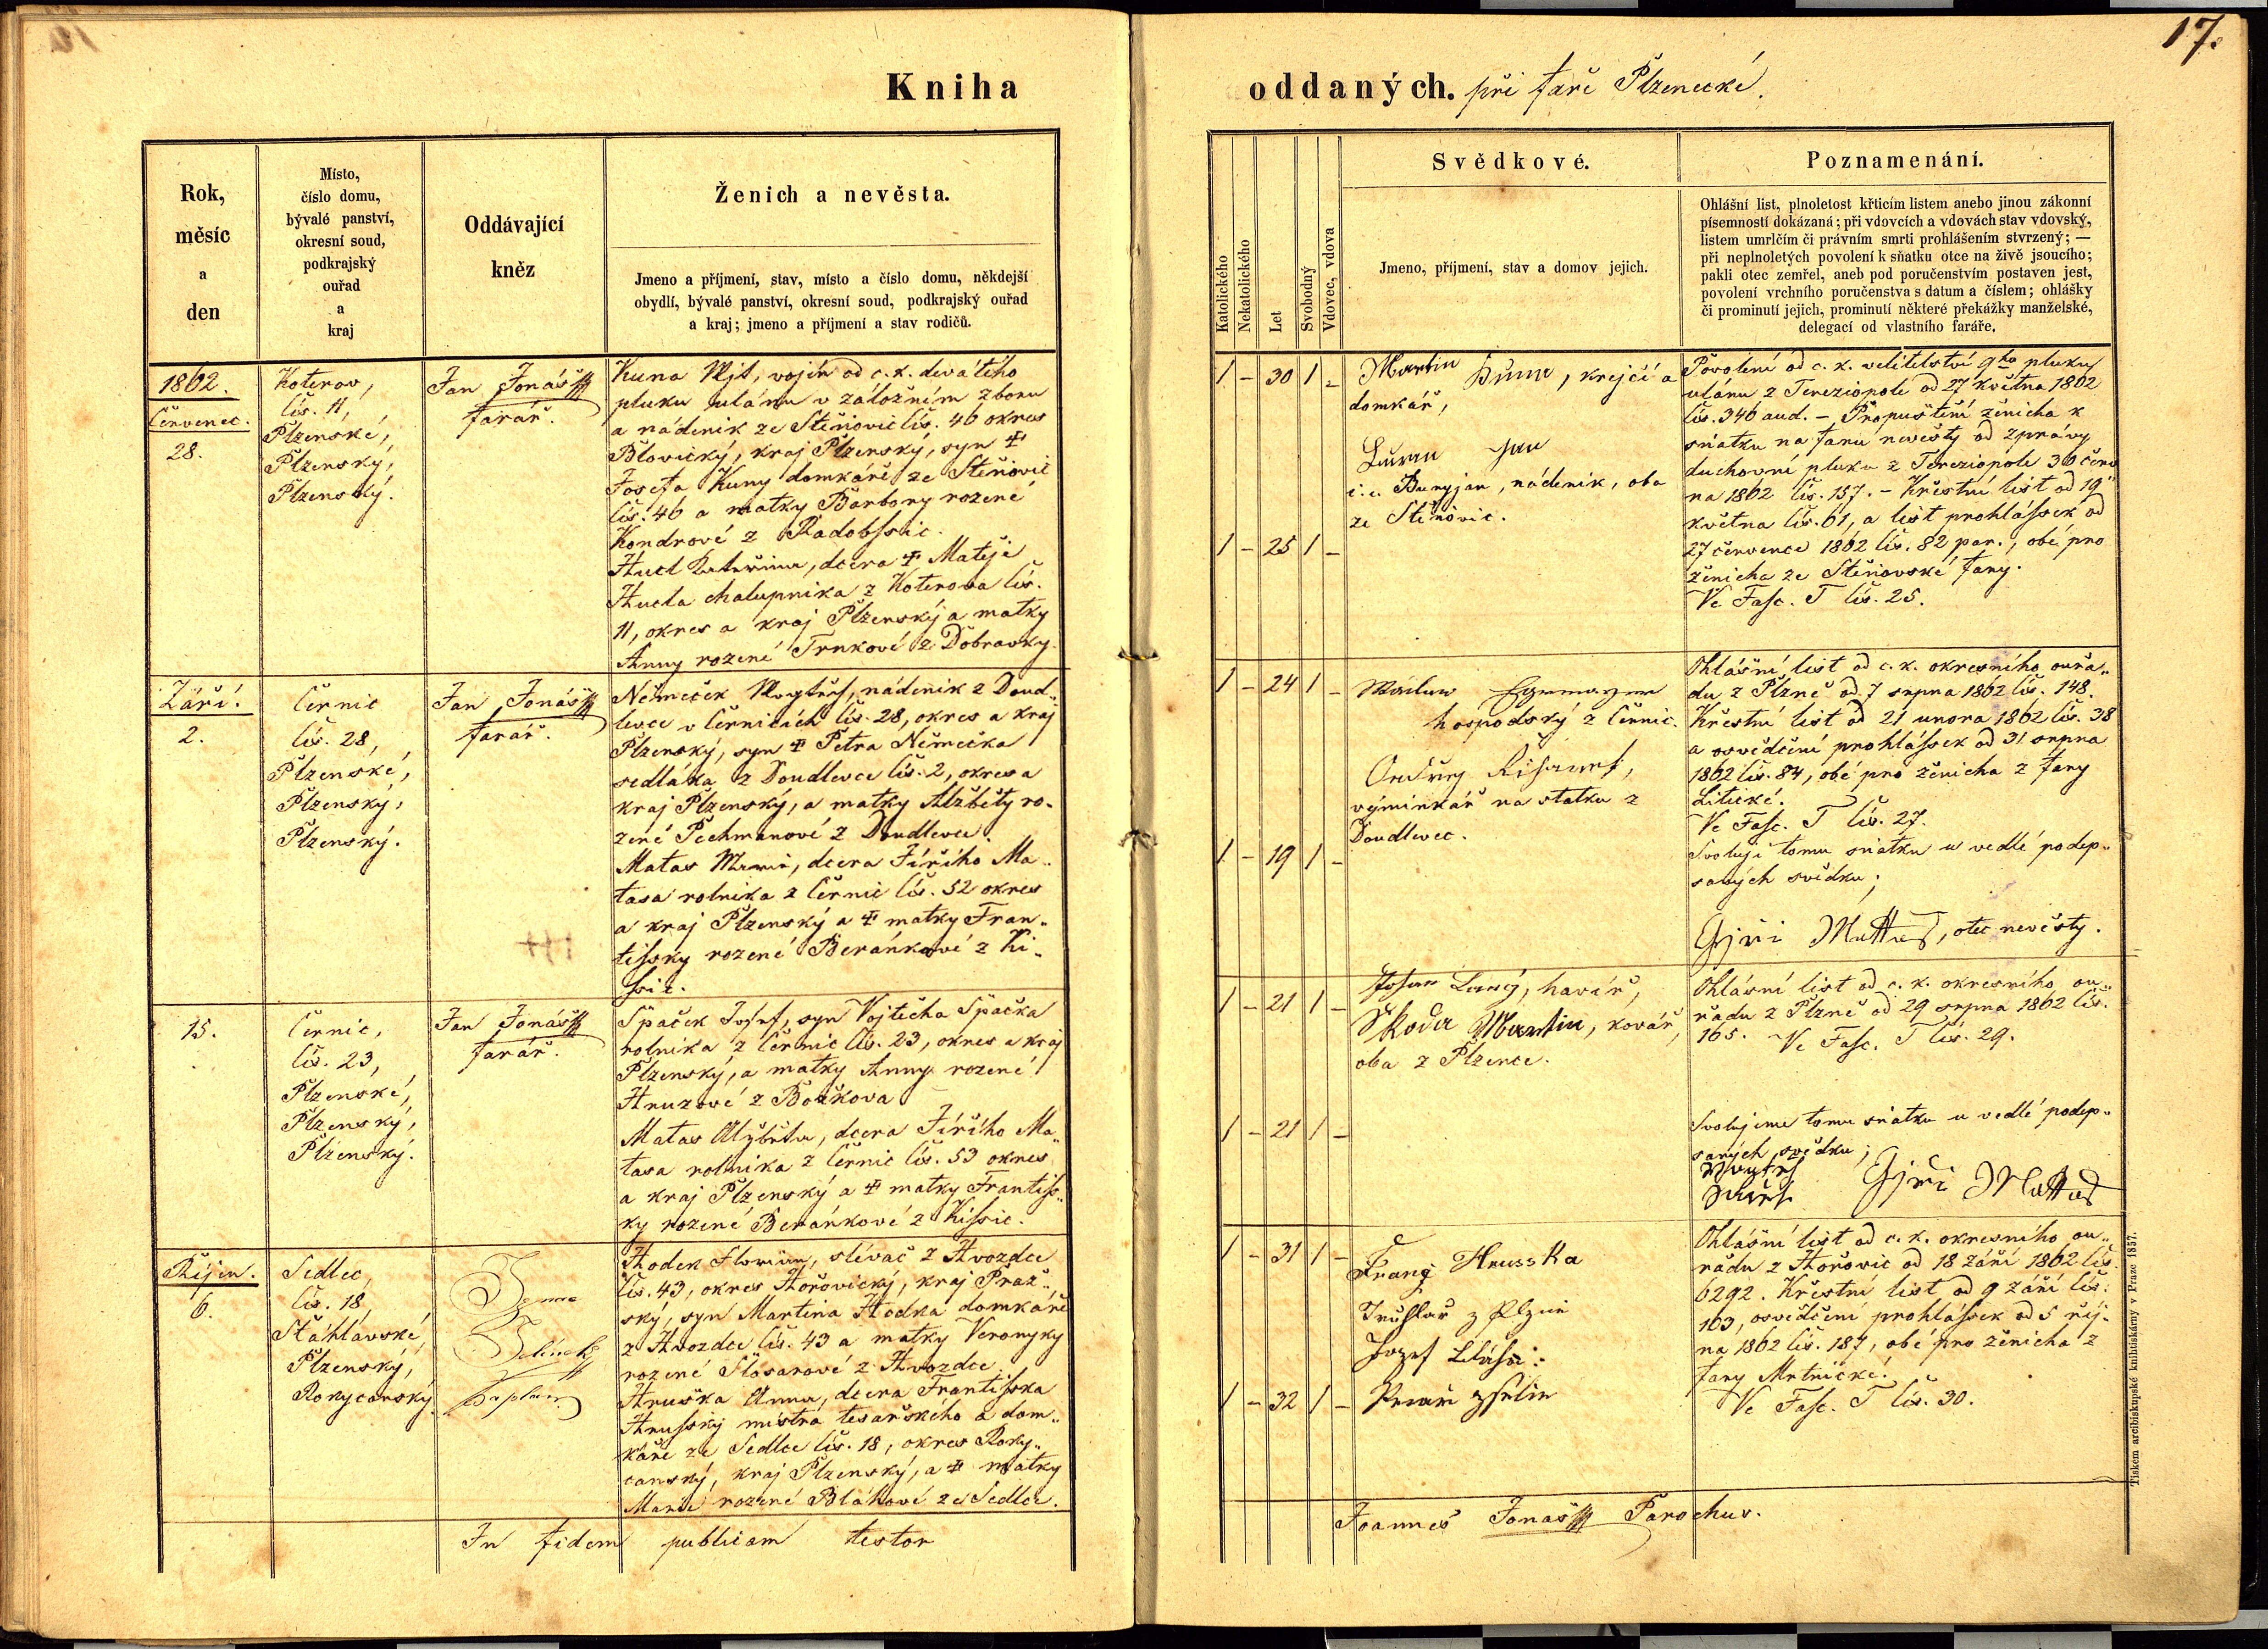 17.
Kniha
oddaných. při faře Plzenecké.
Rok,
měsíc
a
den
Místo,
číslo domu,
bývalé panství,
okresní soud,
podkrajský
ouřad
a
kraj
Oddávající
kněz
Ženich a nevěsta.
Jmeno a příjmení, stav, místo a číslo domu, někdejší
obydlí, bývalé panství, okresní soud, podkrajský ouřad
a kraj; jmeno a příjmení a stav rodičů.
Katolického
Nekatolického
Let
Svobodný
Vdovec, vdova
Svědkové.
Jmeno, příjmení, stav a domov jejich.
Poznamenání.
Ohlášní list, plnoletost křticím listem anebo jinou zákonní
písemností dokázaná; při vdovcích a vdovách stav vdovský,
listem umrlčím či právním smrti prohlášením stvrzený; —
při neplnoletých povolení k sňatku otce na živě jsoucího;
pakli otec zemřel, aneb pod poručenstvím postaven jest,
povolení vrchního poručenstva s datum a číslem; ohlášky
či prominutí jejich, prominutí některé překážky manželské,
delegací od vlastního faráře.
1862.
Červenec.
28.
Koterov,
čís. 11,
Plzenské,
Plzenský,
Plzenský.
Jan Jonáš
farář.
Kuna Vít, vojín od c. k. devátého
pluku ulánu v záložním zboru
a nádeník ze Štěnovic čís. 46 okres
Blovický, kraj Plzenský, syn
Josefa Kuny domkáře ze Štěnovic
čís. 46 a matky Barbory rozené
Kondrové z
Hucl Kateřina, dcera Matěje
Hucla chalupníka z Koterova čís.
11, okres a kraj Plzenský a matky
Anny rozené Trnkové z Dobravky.
1 - 30 1 -
Martin Duma, krejčí a
domkář,
Jan
i. e. Buryjan, nádeník, oba
ze Štěnovic.
1 - 25 1 -
Povolení od c. k. velitelství 9ho pluku
ulánu z Tereziopole od 27 května 1862
čís. 346 aud. - Propuštění ženicha k
sňatku na faru nevěsty od zprávy
duchovní pluku z Tereziopole 30 červ
na 1862 čís. 157. - Křestní list od 19
května čís. 61, a list prohlášek od
27 července 1862 čís. 82 par., obé pro
ženicha ze Štěnovské fary.
Ve Fasc. T čís. 25.
Září.
2.
Černic
čís. 28,
Plzenské,
Plzenský,
Plzenský.
Jan Jonáš
farář.
Němeček Vojtěch, nádeník z Doud„
levce v Černicích čís. 28, okres a kraj
Plzenský, syn Petra Němečka
sedláka z Doudlevce čís. 2, okres a
kraj Plzenský, a matky Alžběty ro-
zené Pechmanové z Doudlevce.
Matas Marie, dcera Jiřího Ma„
tasa rolníka z Černic čís. 52 okres
a kraj Plzenský a matky Fran„
tišky rozené Beránkové z Ki„
šic.
1 - 24 1 -
Václav
hospodský z Černic.
Ondřej
výminkář na statku z
Doudlevec.
1 - 19 1 -
Ohlášní list od c. k. okresního ouřa„
du z Plzně od 7 srpna 1862 čís. 148.
Křestní list od 21 unora 1862 čís. 38
a osvědčení prohlášek od 31 srpna
1862 čís. 84, obé pro ženicha z fary
Litické.
Ve Fasc. T čís. 27.
Svoluji tomu sňatku u vedlé podep„
saných svědku;
Gjři Mattas, otec nevěsty.
15.
Černic,
čís. 23,
Plzenské,
Plzenský,
Plzenský.
Jan Jonáš
farář.
Špaček Josef, syn Vojtěcha Špačka
rolníka z Černic čís. 23, okres a kraj
Plzenský, a matky Anny rozené
Hruzové z Božkova
Matas Alžběta, dcera Jiřího Ma„
tasa rolníka z Černic čís. 53 okres
a kraj Plzenský a matky Františ„
ky rozené Beránkové z Kišic.
1 - 21 1 -
havíř,
Škoda Martin, kovář,
oba z Plzence.
1 - 21 1 -
Ohlásní list od c. k. okresního ou„
řadu z Plzně od 29 srpna 1862 čís.
165. Ve Fasc. T čís. 29.
Svolujeme tomu sňatku u vedlé podep„
saných svědku;
Gjři Mattas
Říjen.
6.
Sedlec,
čís. 18,
Šťáhlavské,
Plzenský,
Rokycanský
Jelínek
kaplan
Hodek Florián, slívač z Hvozdce
čís. 43, okres Hořovický, kraj Praž„
ský, syn Martina Hodka domkáře
z Hvozdce čís. 43 a matky Veronyky
rozené Šlosarové z Hvozdce.
Hruška Anna, dcera Františka
Hrušky mistra tesařského a dom„
káře ze Sedlce čís. 18, okres Roky„
canský, kraj Plzenský, a matky
Marie rozené Bláhové ze Sedlce.
1 - 31 1 -
Franz Hrusska
Truhlař z Plzně
Jozef
1 - 32 1 -
Ohlášní list od c. k. okresního ou„
řadu z Hořovic od 18 září 1862 čís.
6292. Křestní list od 9 září čís.
103, osvědčení prohlášek od 5 říj-
na 1862 čís. 187, obé pro ženicha z
fary Mrtnické.
Ve Fasc. T čís. 30.
In fidem publicam testor
Joannes Jonáš Parochus.
Tiskem arcibiskupské knihtiskárny v Praze 1857.